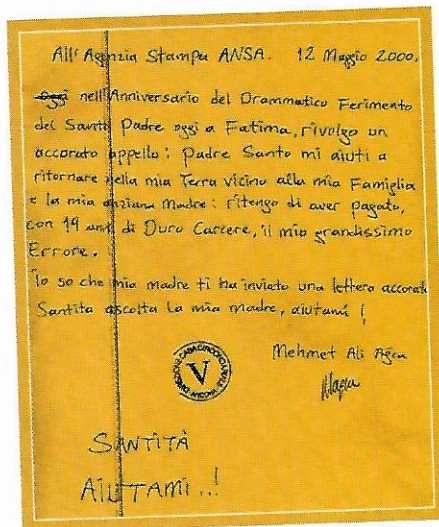 All' Agenzia Stampa ANSA. 12 Maggio 2000.
oggi nell'Anniversario del Drammatico Ferimento
del Santo Padre oggi a Fatima, rivolgo un
accorato appello: Padre Santo mi aiuti a
ritornare nella mia Terra vicino alla mia Famiglia
e la mia anziana Madre: ritengo di aver pagato,
con 19 anni di Duro Carcere, il mio grandissimo
Errore.
Io so che mia madre ti ha inviato una lettera accorata
Santità ascolta la mia madre, aiutami!
Mehmet Ali Ağca
DIREZIONE CASA CIRCONDARIALE
V
ANCONA
SANTITÀ
AIUTAMI..!